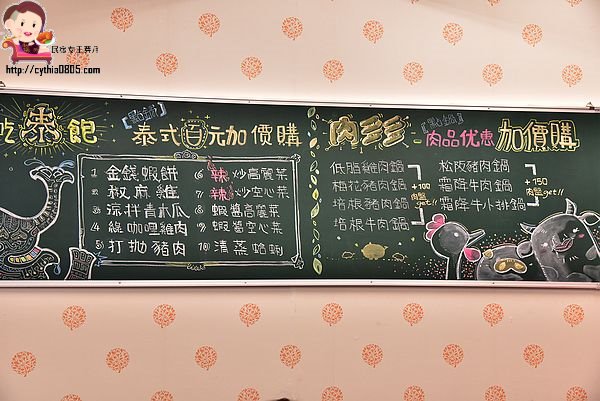 民宿女王芽月
http://cythia0805.com
吃泰飽
泰式百元加價購
1 金錢蝦餅
2 椒麻雞
3 涼拌青木瓜
4 綠咖哩雞肉
5 打拋豬肉
6 辣炒高麗菜
7 辣炒空心菜
8 蝦醬高麗菜
9 蝦醬空心菜
10 清蒸蛤蜊
肉多多
肉品优惠加價購
低脂雞肉鍋
梅花豬肉鍋
培根豬肉鍋
培根牛肉鍋
+100
肉盤
get!!
松阪豬肉鍋
霜降牛肉鍋
霜降牛小排鍋
+150
肉盤get!!